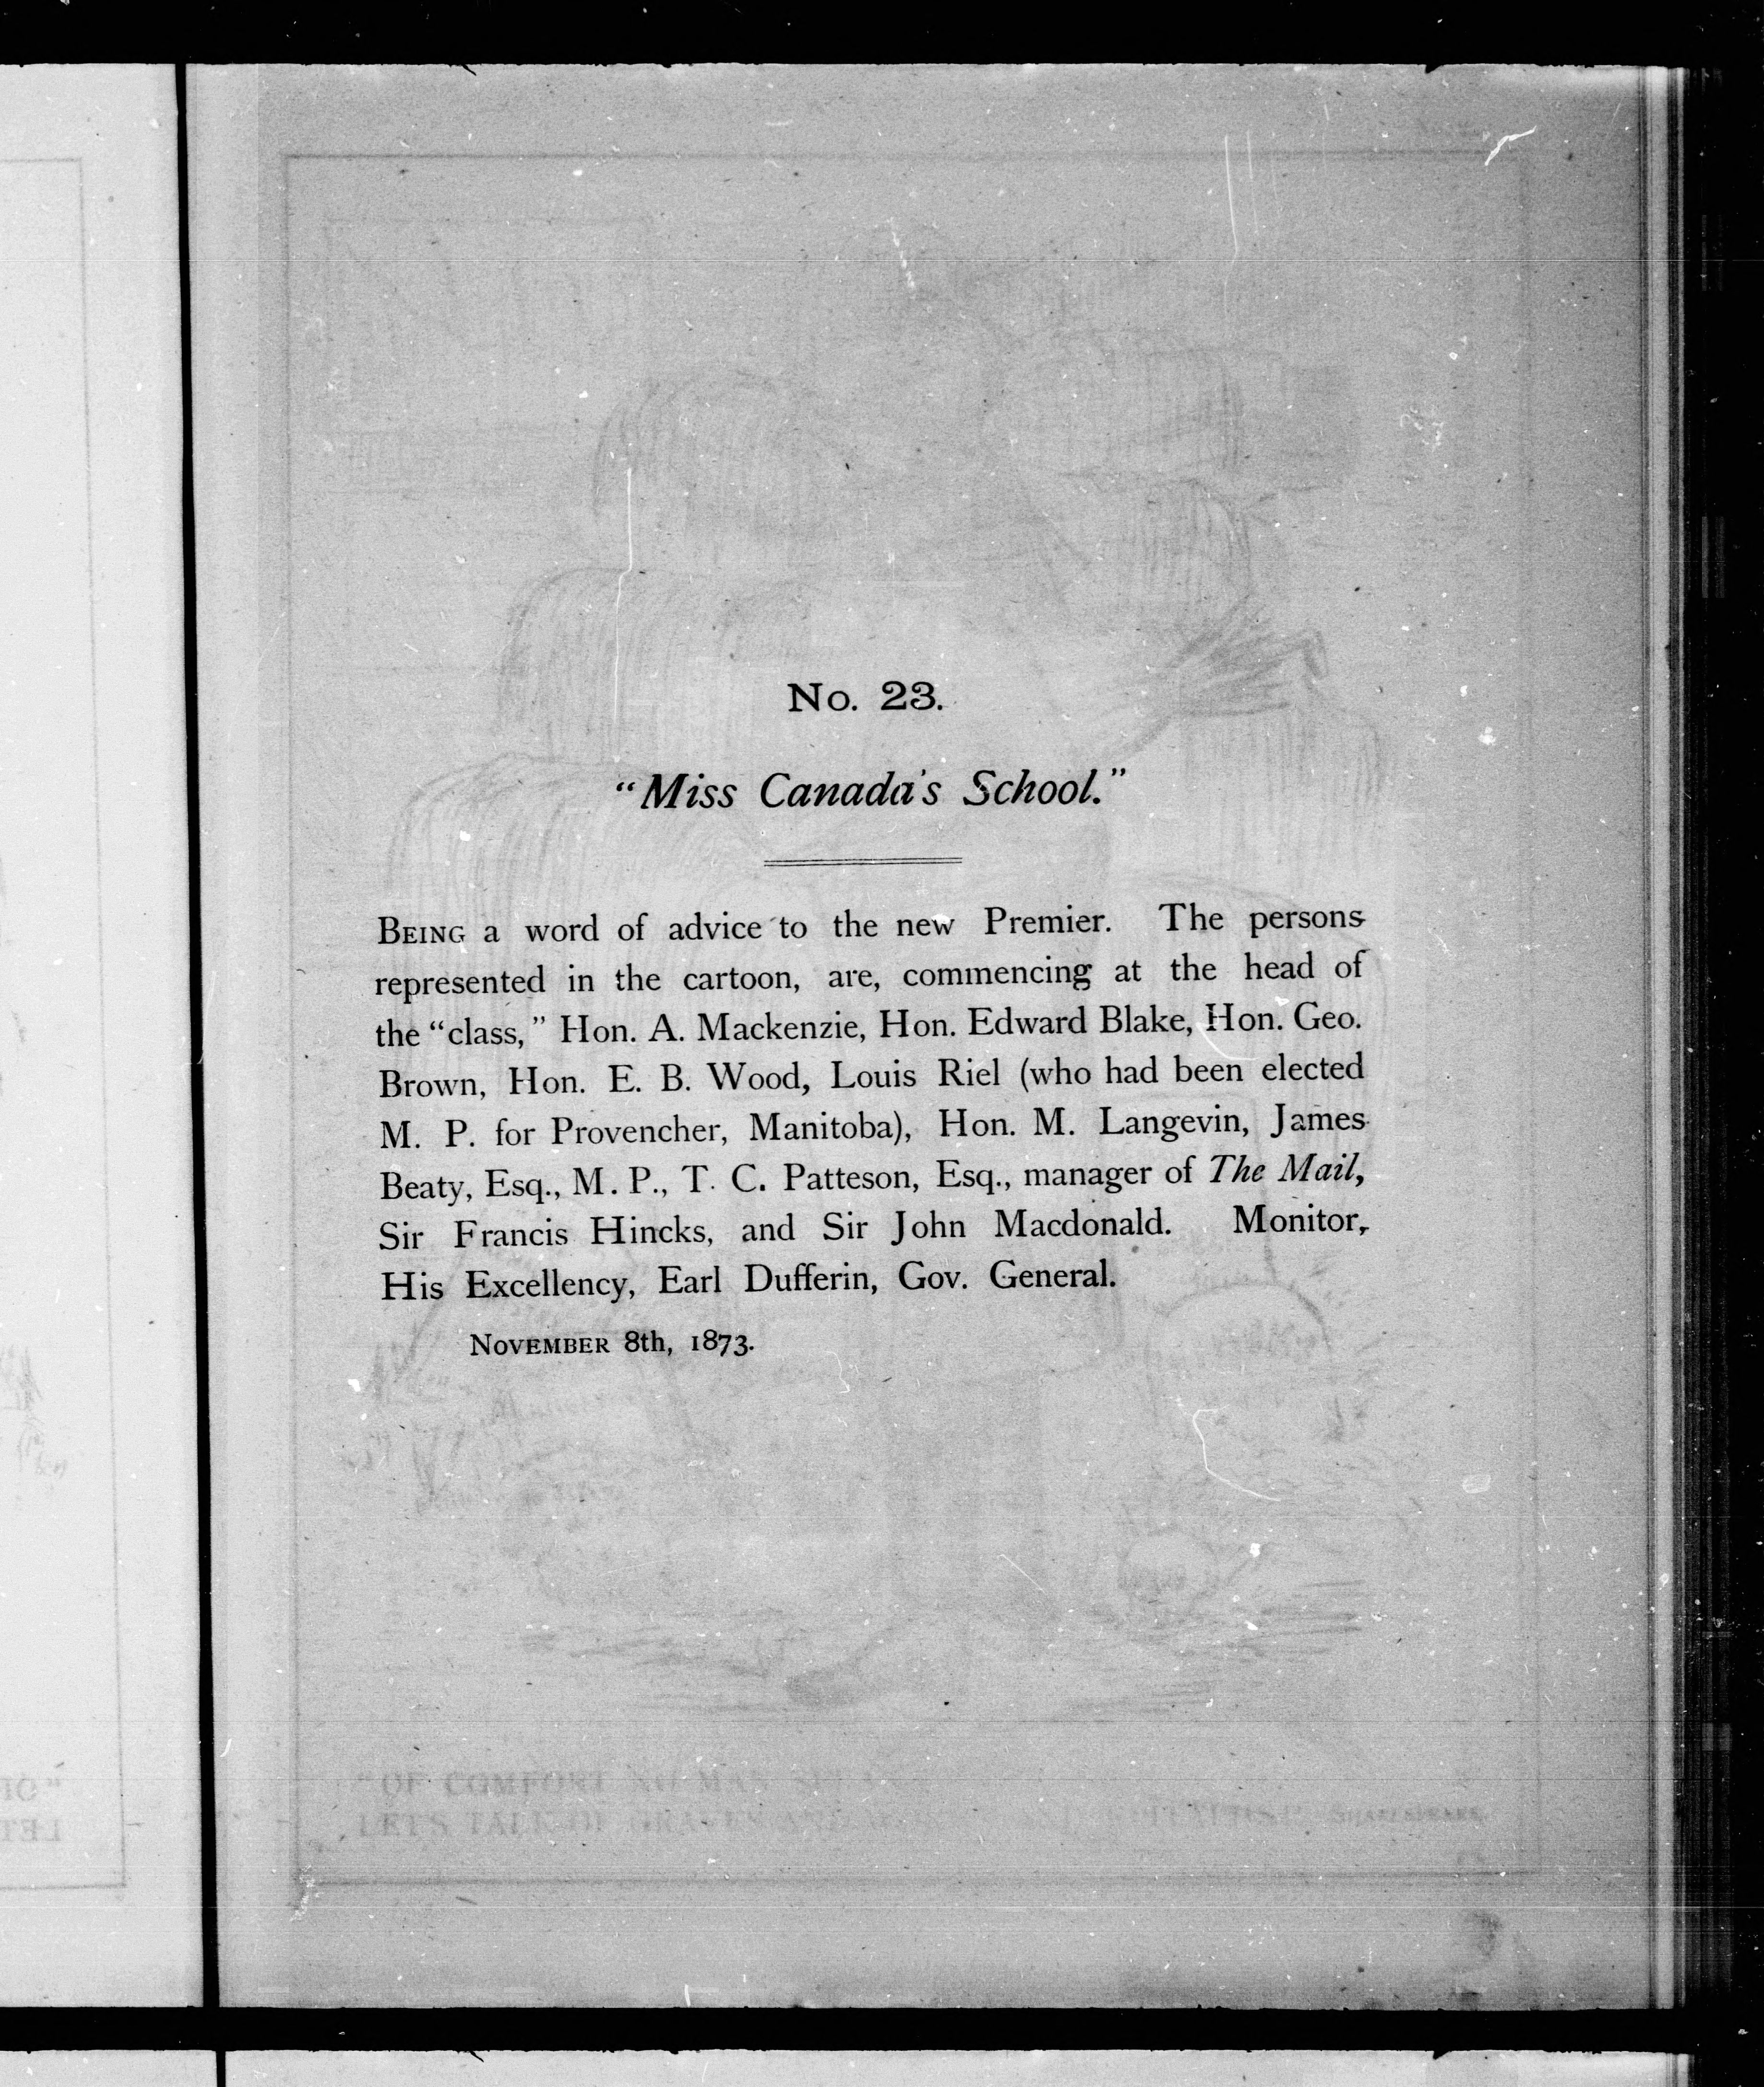 No. 23.
“Miss Canada's School.”
BEING a word of advice to the new Premier. The persons
represented in the cartoon, are, commencing at the head of
the “class,” Hon. A. Mackenzie, Hon. Edward Blake, Hon. Geo.
Brown, Hon. E. B. Wood, Louis Riel (who had been elected
M. P. for Provencher, Manitoba), Hon. M. Langevin, James
Beaty, Esq., M. P., T. C. Patteson, Esq., manager of The Mail,
Sir Francis Hincks, and Sir John Macdonald. Monitor,
His Excellency, Earl Dufferin, Gov. General.
NOVEMBER 8th, 1873.
“OF COMFORT NO MAN
LET'S TALK OF GRAVES AND EPITAPHS” SHAKESPEARE